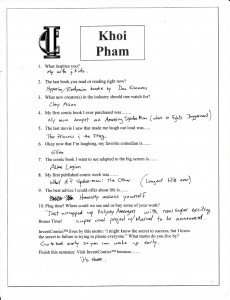 Khoi
Pham
1. What inspires you?
My wife & kids.
2. The last book you read or reading right now?
Hyperion, Endymion books by Dan Simmons
3. What new creator(s) in the industry should one watch for?
4. My first comic book I ever purchased was.....
My mom bought me Amazing Spider-Man (when he fights Juggernaut)
5. The last movie I saw that made me laugh out loud was....
The Princess & the Frog.
6. Okay now that I'm laughing, my favorite comedian is....
7. The comic book I want to see adapted to the big screen is.....
Alien Legion
8. My first published comic work was.....
What If? Spider-Man: The Other (Longest title ever)
9. The best advice I could offer about life is....
Honestly assess yourself
10. Plug time! Where could we see and buy some of your work?
Just wrapped up Mighty Avengers with new super exciting
super cool project w/ Marvel to be announced
Bonus Time!
InvestComics lives by this motto: "I might know the secret to success, but I know
the secret to failure is trying to please everyone." What motto do you live by?
Go to bed early so you can wake up early.
Finish this sentence: Visit InvestComics™ because.....
it's there.